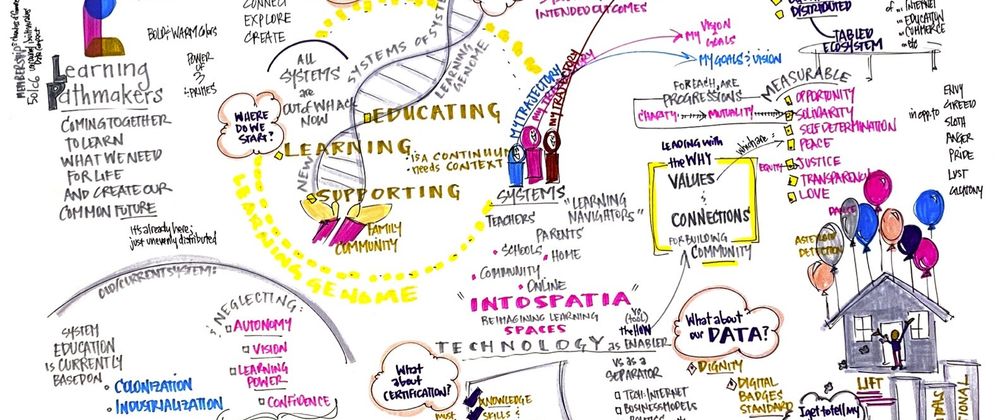 CONNECT
EXPLORE
CREATE
BOLD & WARM GOALS
POWER
OF
3
Learning
Pathmakers
COMING TOGETHER
TO LEARN
WHAT WE NEED
FOR LIFE
AND CREATE OUR
COMMON FUTURE
It's already here,
just unevenly distributed
ALL
SYSTEMS
are
OUT OF WHACK
NOW
WHERE
DO WE
START?
SYSTEMS OF SYSTEMS
LEARNING
GENOME
NEW
EDUCATING
LEARNING
IS A CONTINUUM
needs CONTEXT
SUPPORTING
FAMILY
COMMUNITY
LEARNING GENOME
INTENDED OUTCOMES
MY TRAJECTORY
MY TRAJECTORY
MY TRAJECTORY
MY VISION
& GOALS
MY GOALS & VISION
SYSTEMS
TEACHERS
"LEARNING
NAVIGATORS"
PARENTS
• SCHOOLS
• HOME
• COMMUNITY
• ONLINE
"INTOSPATIA"
REIMAGINING LEARNING
SPACES
TECHNOLOGY as ENABLER
(tool)
the HOW
VS as a
SEPARATOR
TECH-INTERNET
BUSINESS MODELS
FOR EACH, ARE
PROGRESSIONS
CHARITY
MUTUALITY
LEADING with
the WHY
VALUES
&
CONNECTIONS
FOR BUILDING
COMMUNITY
which are:
MEASURABLE
OPPORTUNITY
SOLIDARITY
SELF DETERMINATION
PEACE
EQUITY
JUSTICE
TRANSPARENCY
LOVE
in opp to
ENVY
GREED
SLOTH
ANGER
PRIDE
LUST
GLUTTONY
DISTRIBUTED
TABLED
ECOSYSTEM
INTERNET
EDUCATION
COMMERCE
etc
DANCE
DETECTION
OLD/CURRENT SYSTEM:
SYSTEM
EDUCATION
IS CURRENTLY
BASED ON
• COLONIZATION
• INDUSTRIALIZATION
NEGLECTING:
AUTONOMY
VISION
LEARNING
POWER
CONFIDENCE
What
about
CERTIFICATION?
KNOWLEDGE
SKILLS &
MUST
What about
our DATA?
DIGNITY
DIGITAL
BADGES
STANDARD
LIFT
I get to tell my